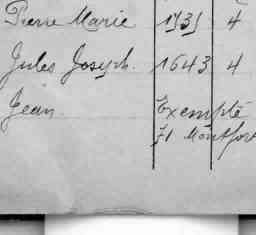 Pierre Marie 1931 4
Jules Joseph. 1643 4
Jean Exempté
Montfort